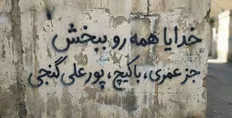 خدایا همه رو ببخش
جز عمری، باکیچ، پورعلی گنجی